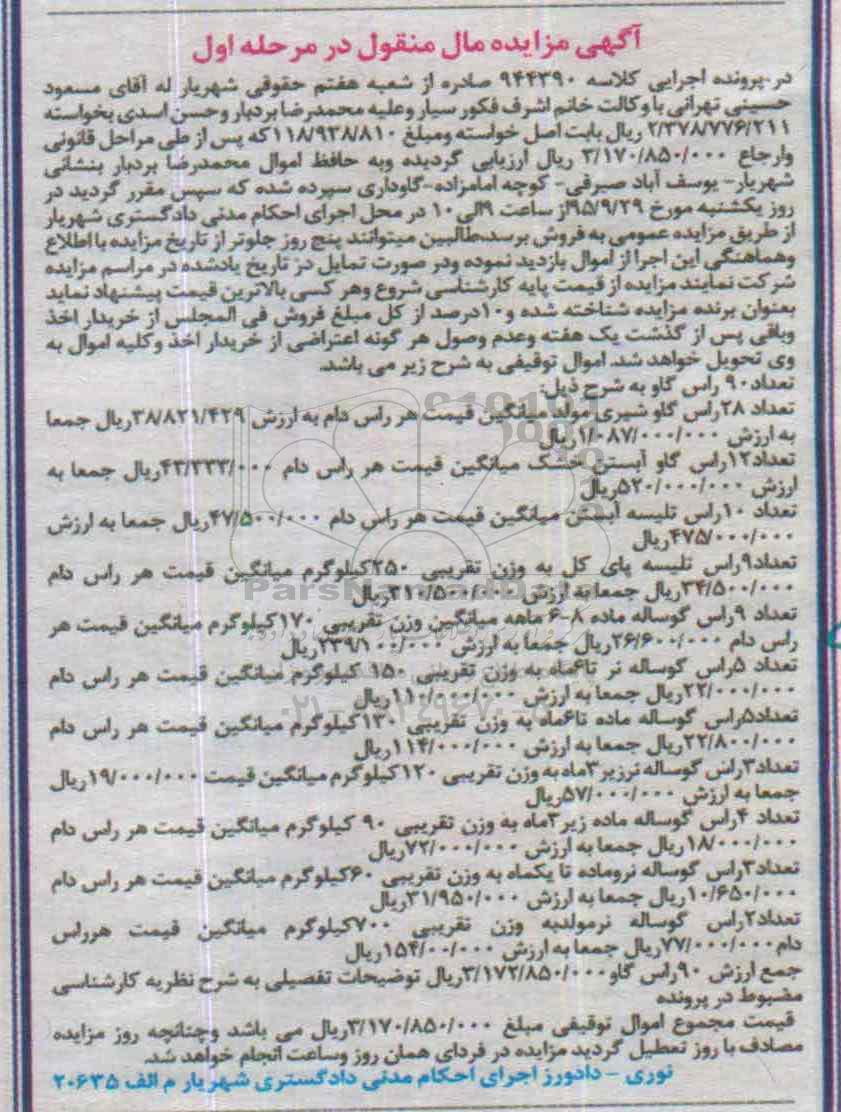 آگهی مزایده مال منقول در مرحله اول
در پرونده اجرایی کلاسه ۹۴۴۳۹۰ صادره از شعبه هفتم حقوقی شهریار له آقای مسعود
حسینی تهرانی با وکالت خانم اشرف فکور سیار وعلیه محمدرضا بردبار وحسن اسدی بخواسته
۲/۳۷۸/۷۷۶/۲۱۱ ریال بابت اصل خواسته ومبلغ ۱۱۸/۹۳۸/۸۱۰ که پس از طی مراحل قانونی
وارجاع ۳/۱۷۰/۸۵۰/۰۰۰ ریال ارزیابی گردیده وبه حافظ اموال محمدرضا بردبار بنشانی
شهریار- یوسف آباد صیرفی- کوچه امامزاده-گاوداری سپرده شده که سپس مقرر گردید در
روز یکشنبه مورخ ۹۵/۹/۲۹از ساعت ۹الی ۱۰ در محل اجرای احکام مدنی دادگستری شهریار
از طریق مزایده عمومی به فروش برسد.طالبین میتوانند پنج روز جلوتر از تاریخ مزایده با اطلاع
وهماهنگی این اجرا از اموال بازدید نموده ودر صورت تمایل در تاریخ یادشده در مراسم مزایده
شرکت نمایند مزایده از قیمت پایه کارشناسی شروع وهر کسی بالاترین قیمت پیشنهاد نماید
بعنوان برنده مزایده شناخته شده و۱۰درصد از کل مبلغ فروش فی المجلس از خریدار اخذ
وباقی پس از گذشت یک هفته وعدم وصول هر گونه اعتراضی از خریدار اخذ وکلیه اموال به
وی تحویل خواهد شد. اموال توقیفی به شرح زیر می باشد.
تعداد۹۰ راس گاو به شرح ذیل:
تعداد ۲۸راس گاو شیری مولد میانگین قیمت هر راس دام به ارزش ۳۸/۸۲۱/۴۲۹ریال جمعا
به ارزش ۱/۰۸۷/۰۰۰/۰۰۰ریال
تعداد۱۲راس گاو آبستن خشک میانگین قیمت هر راس دام ۴۳/۳۳۳/۰۰۰ریال جمعا به
ارزش ۵۲۰/۰۰۰/۰۰۰ریال
تعداد ۱۰راس تلیسه آبستن میانگین قیمت هر راس دام ۴۷/۵۰۰/۰۰۰ریال جمعا به ارزش
۴۷۵/۰۰۰/۰۰۰ریال
تعداد۹راس تلیسه پای کل به وزن تقریبی ۲۵۰کیلوگرم میانگین قیمت هر راس دام
۳۴/۵۰۰/۰۰۰ریال جمعا به ارزش ۳۱۰/۵۰۰/۰۰۰ریال
تعداد ۹راس گوساله ماده ۸-۶ ماهه میانگین وزن تقریبی ۱۷۰کیلوگرم میانگین قیمت هر
راس دام ۲۶/۶۰۰/۰۰۰ریال جمعا به ارزش ۲۳۹/۱۰۰/۰۰۰ریال
تعداد ۵راس گوساله نر تا۶ماه به وزن تقریبی ۱۵۰ کیلوگرم میانگین قیمت هر راس دام
۲۲/۰۰۰/۰۰۰ریال جمعا به ارزش ۱۱۰/۰۰۰/۰۰۰ریال
تعداد۵راس گوساله ماده تا۶ماه به وزن تقریبی ۱۳۰کیلوگرم میانگین قیمت هر راس دام
۲۲/۸۰۰/۰۰۰ریال جمعا به ارزش ۱۱۴/۰۰۰/۰۰۰ریال
تعداد۳راس گوساله نرزیر۳ماه به وزن تقریبی ۱۲۰کیلوگرم میانگین قیمت ۱۹/۰۰۰/۰۰۰ریال
جمعا به ارزش ۵۷/۰۰۰/۰۰۰ریال
تعداد ۴راس گوساله ماده زیر۳ماه به وزن تقریبی ۹۰ کیلوگرم میانگین قیمت هر راس دام
۱۸/۰۰۰/۰۰۰ریال جمعا به ارزش ۷۲/۰۰۰/۰۰۰ریال
تعداد۳راس گوساله نروماده تا یکماه به وزن تقریبی ۶۰کیلوگرم میانگین قیمت هر راس دام
۱۰/۶۵۰/۰۰۰ریال جمعا به ارزش ۳۱/۹۵۰/۰۰۰ریال
تعداد۲راس گوساله نرمولدبه وزن تقریبی ۷۰۰کیلوگرم میانگین قیمت هرراس
دام۷۷/۰۰۰/۰۰۰ریال جمعا به ارزش ۱۵۴/۰۰/۰۰۰ریال
جمع ارزش ۹۰راس گاو۳/۱۷۲/۸۵۰/۰۰۰ریال توضیحات تفصیلی به شرح نظریه کارشناسی
مضبوط در پرونده
قیمت مجموع اموال توقیفی مبلغ ۳/۱۷۰/۸۵۰/۰۰۰ریال می باشد وچنانچه روز مزایده
مصادف با روز تعطیل گردید مزایده در فردای همان روز وساعت انجام خواهد شد.
نوری - دادورز اجرای احکام مدنی دادگستری شهریار م الف ۲۰۶۳۵